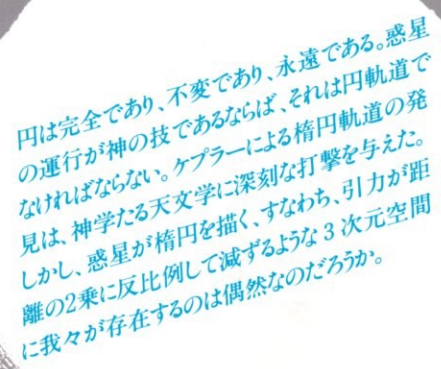 円は完全であり、不変であり、永遠である。惑星
の運行が神の技であるならば、それは円軌道で
なければならない。ケプラーによる楕円軌道の発
見は、神学たる天文学に深刻な打撃を与えた。
しかし、惑星が楕円を描く、すなわち、引力が距
離の2乗に反比例して減ずるような3次元空間
に我々が存在するのは偶然なのだろうか。